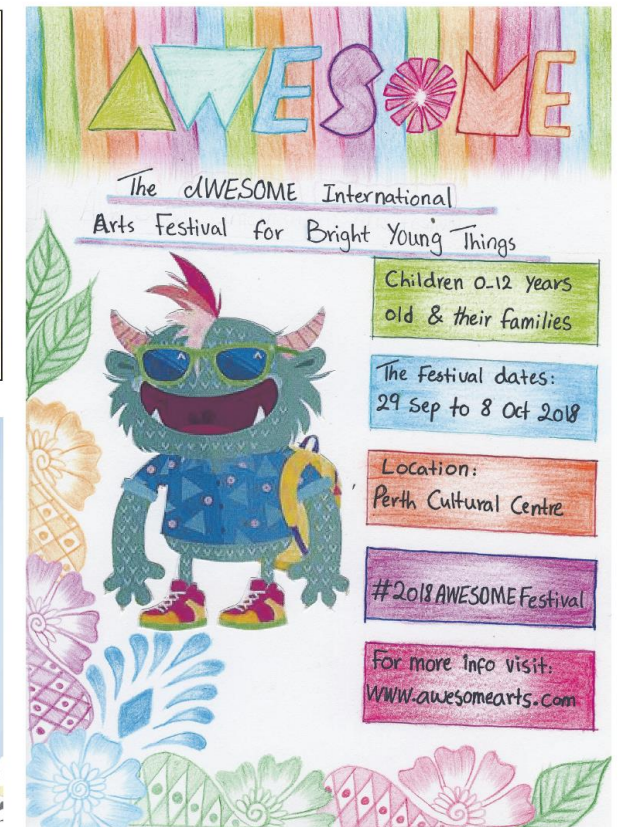 AWESOME
The AWESOME International
Arts Festival for Bright Young Things
Children 0-12 years
old & their families
The Festival dates:
29 Sep to 8 Oct 2018
Location:
Perth Cultural Centre
#2018AWESOMEFestival
For more info visit:
www.awesomearts.com